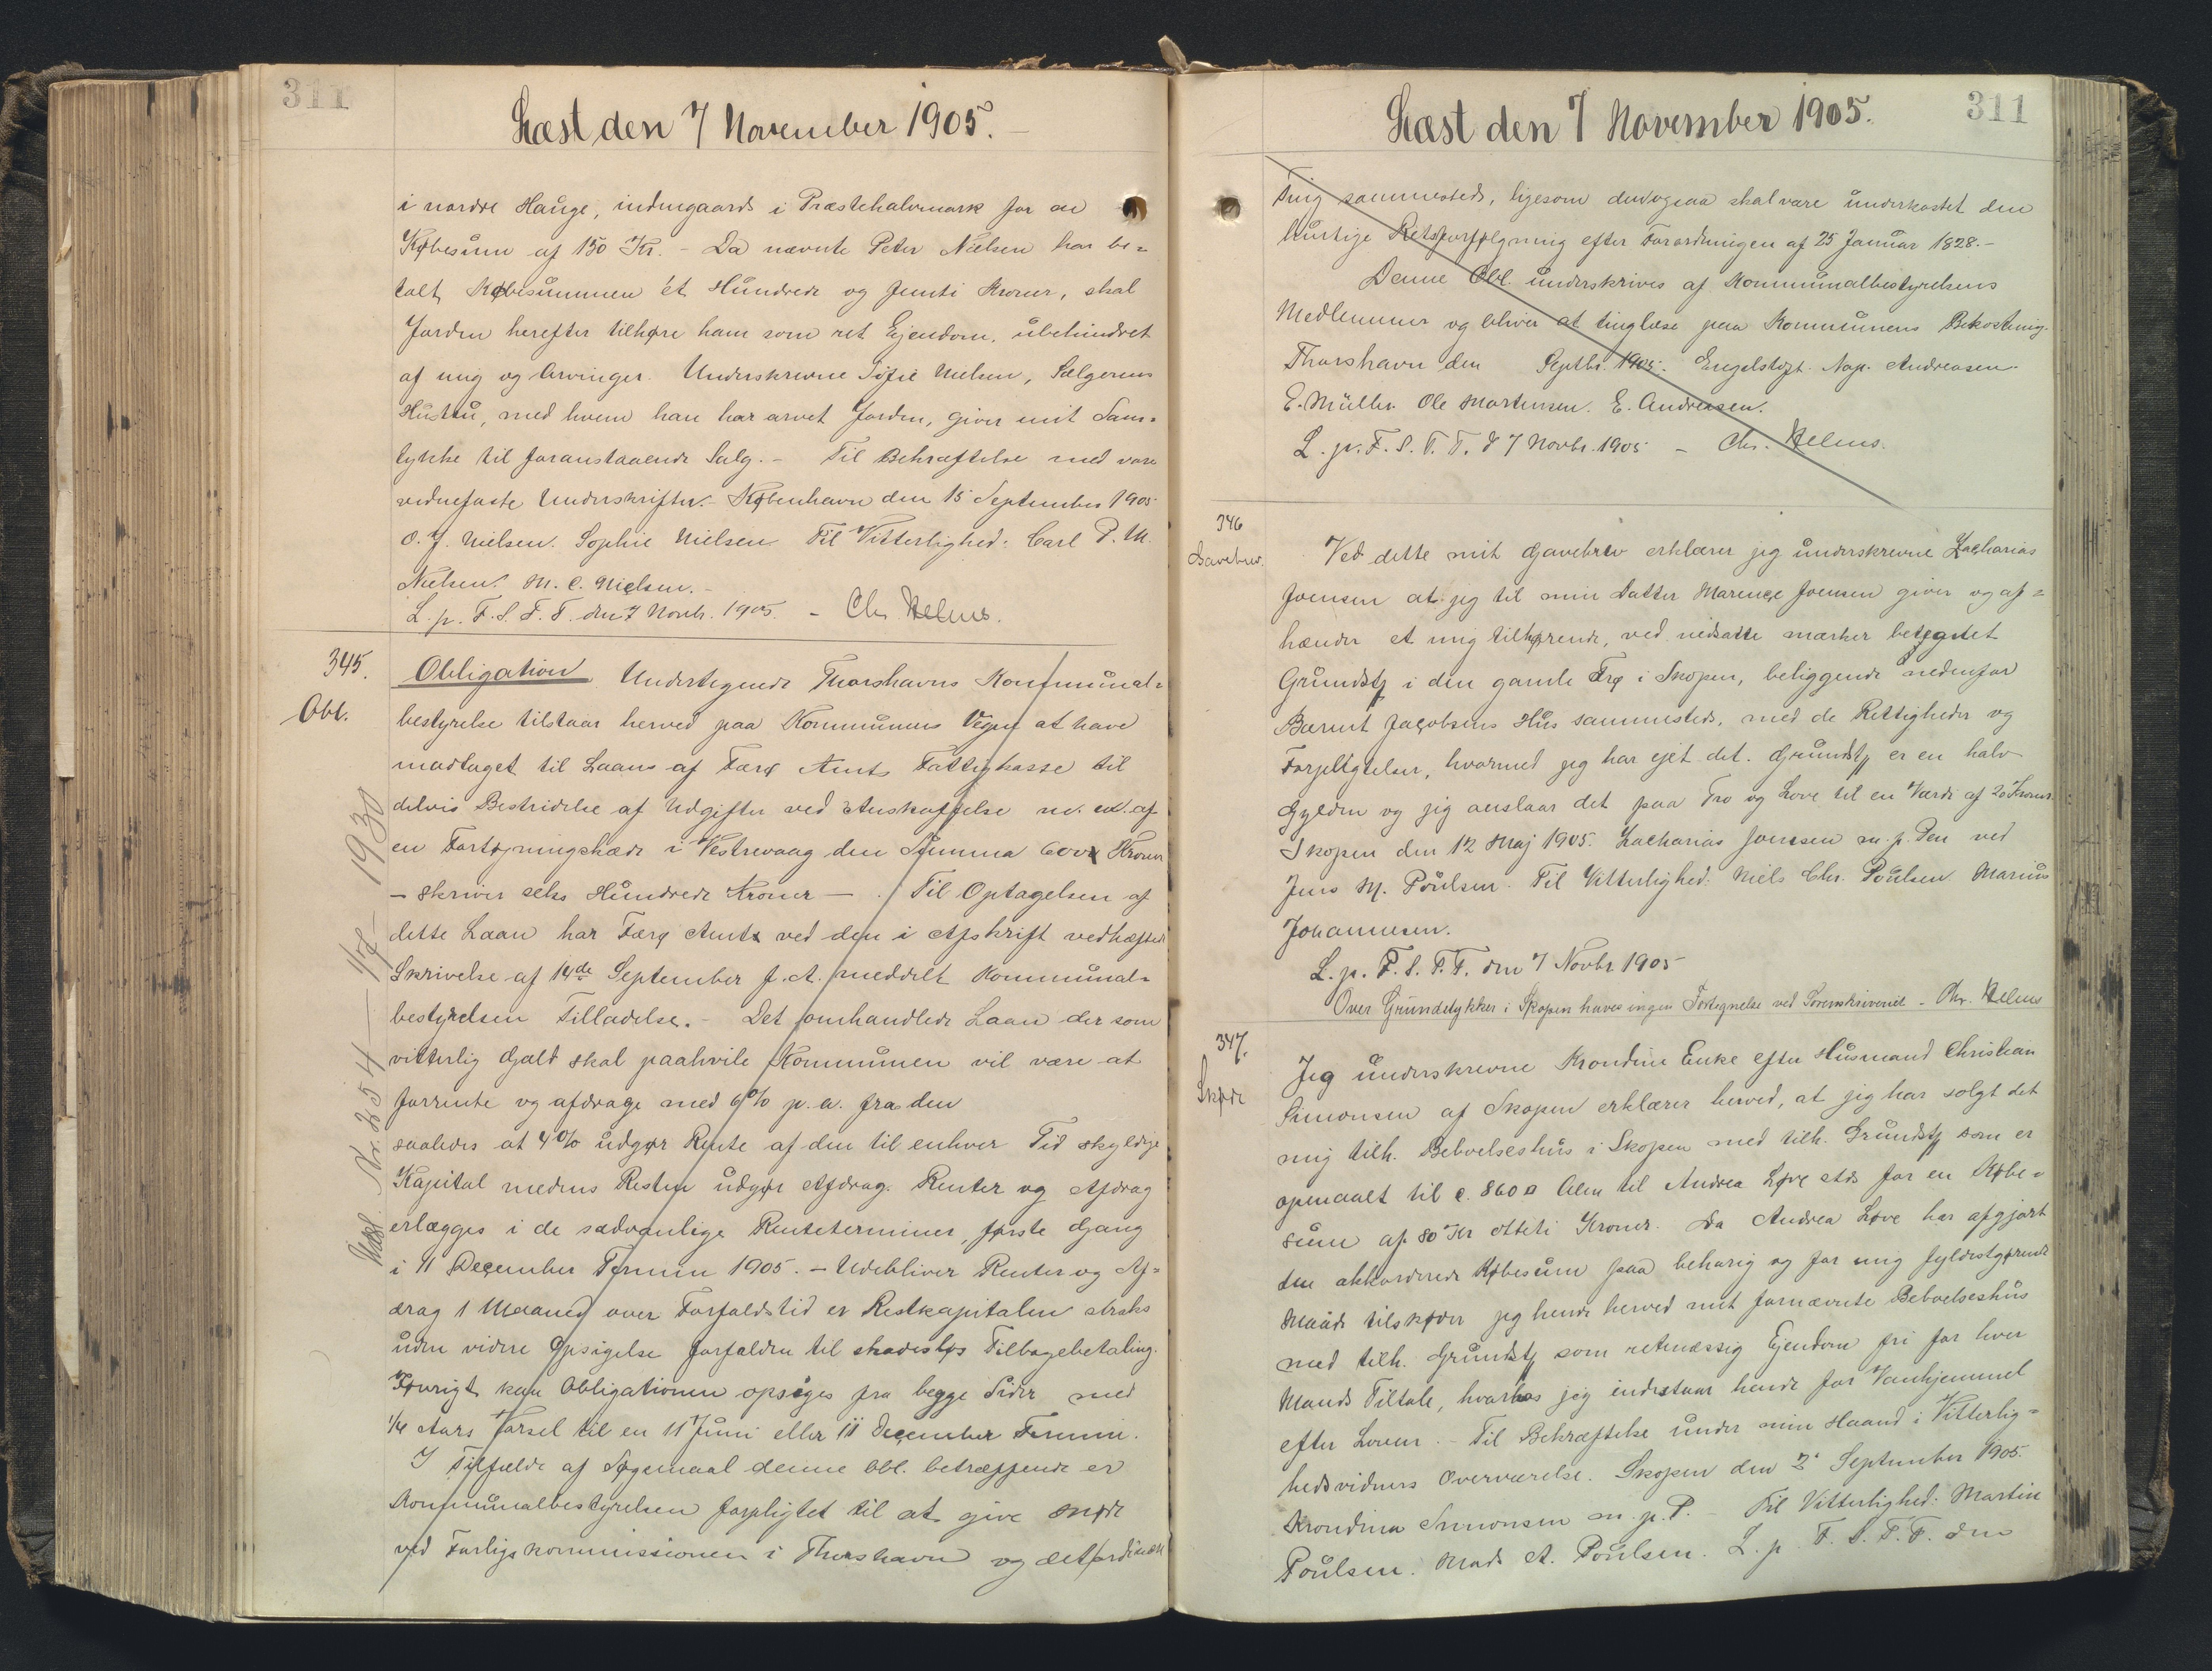 311
Læst den 7 November 1905.
i nordre Hauge, indengaards i Præstehalvmark for en
Købesum af 150 Kr. - Da nævnte Peter Nielsen har be-
talt Købesummen et Hundrede og femti Kroner, skal
Jorden herefter tilhøre ham som ret Ejendom, ubehindret
af mig og Arvinger. Underskrevne Sofie Nielsen, Sælgerens
Hustru, med hvem han har arvet Jorden, giver mit Sam-
tykke til foranstaaende Salg. - Til Bekræftelse med vore
vidnefaste Underskrifter. - København den 15 September 1905
O. J. Nielsen. Sophie Nielsen Til Vitterlighed: Carl P. M.
Nielsen. M. C. Nielsen. -
L. p. F. S. T. T. den 7 Novb. 1905. - Chr. Helms.
345.
Obl.
Obligation Undertegnede Thorshavns Kommunal-
bestyrelse tilstaar herved paa Kommunens Vegne at have
modtaget til Laans af Færø Amts Fattigkasse til
delvis Bestridelse af Udgifter ved Anskaffelse m. m. af
en Fortøjningskæde i Vestrevaag den Summa 600 Kroner
- skriver seks Hundrede Kroner - . Til Optagelsen af
dette Laan har Færø Amt ved den i Afskrift vedhæftede
Skrivelse af 14de September f. A. meddelt Kommunal-
bestyrelsen Tilladelse. - Det omhandlede Laan der som
vitterlig Gæld skal paahvile Kommunen vil være at
forrente og afdrage med 6% p. a. fra den
saaledes at 4% udgør Rente af den til enhver Tid skyldige
Kapital medens Resten udgør Afdrag. Renter og Afdrag
erlægges i de sædvanlige Renteterminer, første Gang
i 11 December Termin 1905. - Udebliver Renter og Af-
drag 1 Maaned over Forfaldstid er Restkapitalen straks
uden videre Opsigelse forfalden til skadesløs Tilbagebetaling.
Iøvrigt kan Obligationen opsiges fra begge Sider med
1/4 Aars Varsel til en 11 Juni eller 11 December Termin.
I Tilfælde af Søgsmaal denne Obl. betræffende er
Kommunalbestyrelsen forpligtet til at give Møde
ved Forligskommissionen i Thorshavn og det ordinære
Nr. 254 1930
311
Læst den 7 November 1905.
Ting sammesteds, ligesom den ogsaa skal være underkastet den
hurtige Retsforfølgning efter Forordningen af 25 Januar 1828. -
Denne Obl. underskrives af Kommunalbestyrelsens
Medlemmer og bliver at tinglæse paa Kommunens Bekostning.
Thorshavn den Septbr. 1905. Engelstoft. Nap. Andreasen.
E. Müller. Ole Mortensen. E. Andreasen.
L. p. F. S. T. T. d 7 Novbr. 1905 - Chr. Helms.
346
Gavebrev.
Ved dette mit Gavebrev erklærer jeg underskrevne Zacharias
Joensen at jeg til min Datter Marence Joensen giver og af-
hænder et mig tilhørende, ved nedsatte mærker betegnet
Grundst i den gamle Trø i Skopen, beliggende nedenfor
Berint Jacobsens Hus sammesteds, med de Rettigheder og
Forpligtelser, hvormed jeg har ejet det. Grundst er en halv
Gylden og jeg anslaar det paa Tro og Love til en Værdi af 20 Kroner.
Skopen den 12 Maj 1905. Zacharias Joensen m. p. Pen ved
Jens M. Poulsen. Til Vitterlighed: Niels Chr. Poulsen Marius
Johannesen.
L. p. F. S. T. T. den 7 Novbr 1905
Over Grundstykker i Skopen haves ingen Fortegnelse ved Sorenskriveriet - Chr. Helms
347.
Skøde
Jeg underskrevne Krondine Enke efter Husmand Christian
Simonsen af Skopen erklærer herved, at jeg har solgt det
mig tilh. Beboelseshus i Skopen med tilh. Grundst som er
opmaalt til c. 860 □ Alen til Andrea Løve stds for en Købe-
sum af 80 Kr otteti Kroner. Da Andrea Løve har afgjort
den akkorderede Købesum paa behørig og for mig fyldestgørende
Maade tilskøder jeg hende herved mit fornævnte Beboelseshus
med tilh. Grundst som retmæssig Ejendom fri for hver
Mands Tiltale, hvorhos jeg indestaar hende for Vanhjemmel
efter Loven. - Til Bekræftelse under min Haand i Vitterlig-
hedsvidners Overværelse. Skopen den 3 September 1905.
Krondina Simonsen m. p. P. - Til Vitterlighed: Martin
Poulsen. Mads A. Poulsen. L. p. F. S. T. T. den